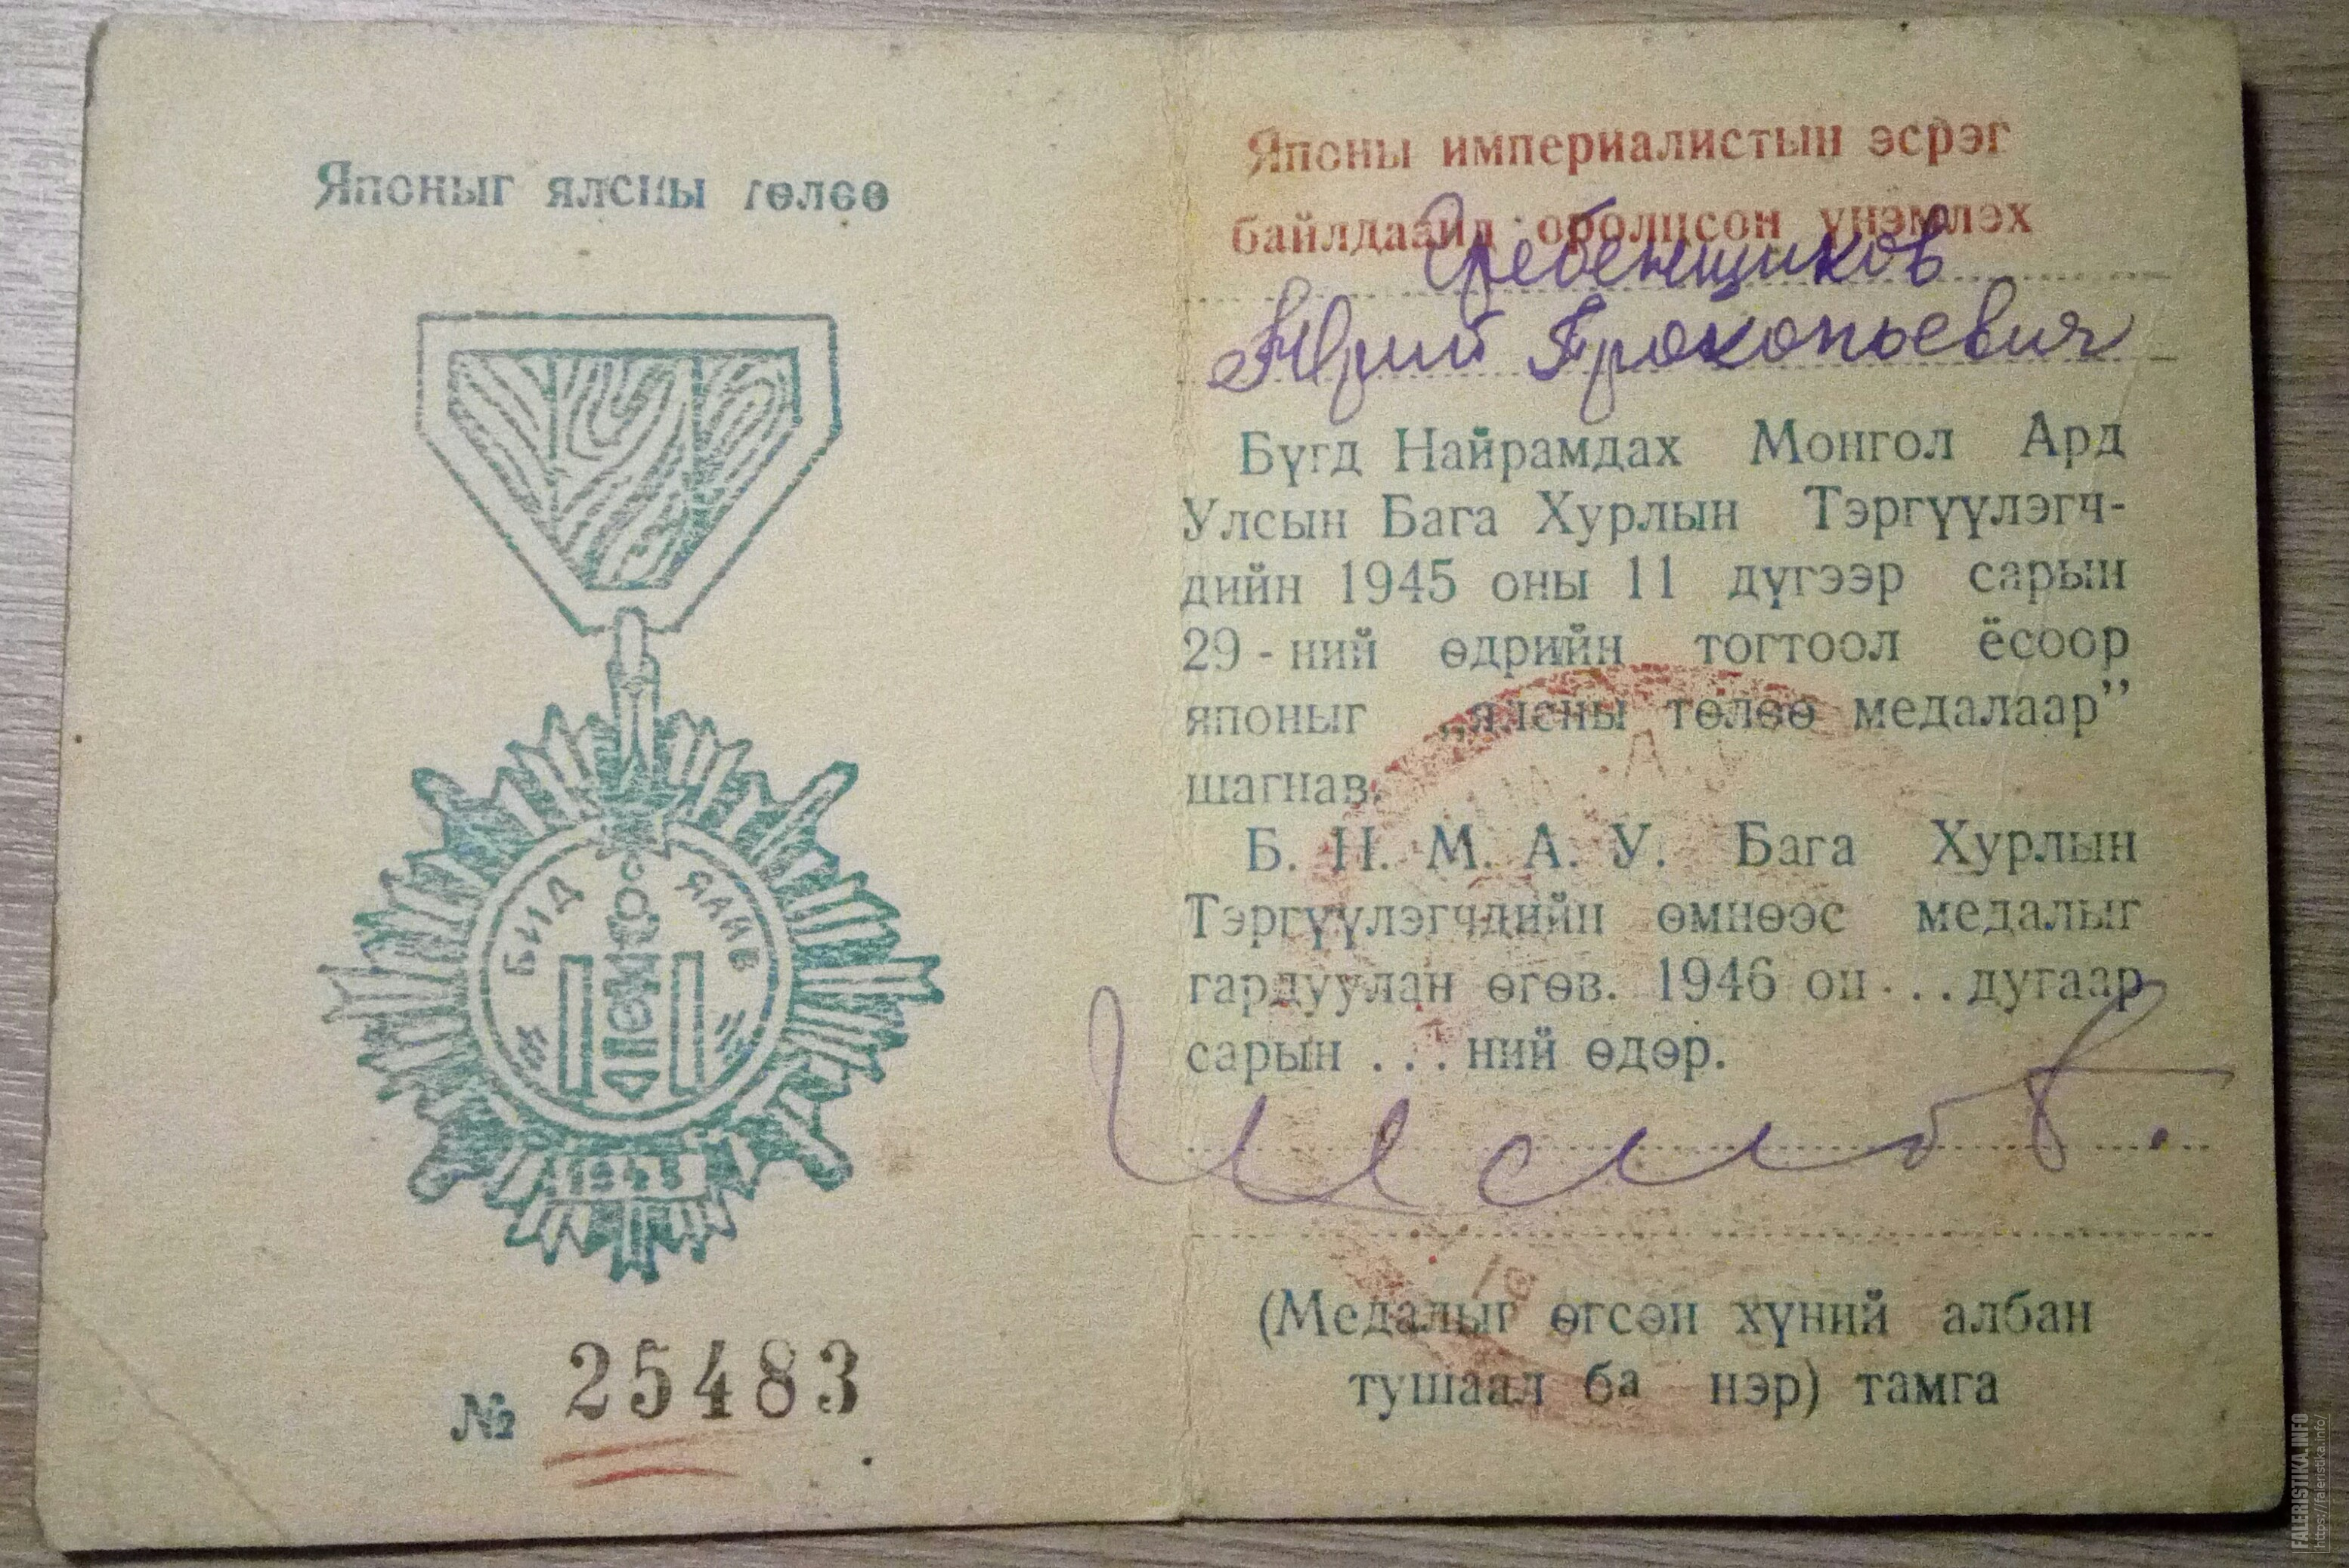 Японыг ялсны төлөө
БИД
ЯЛАВ
1945
№ 25483
Японы империалистын эсрэг
байлдаанд оролцсон үнэмлэх
Гребенщиков
Юрий Прокопьевич
Бүгд Найрамдах Монгол Ард
Улсын Бага Хурлын Тэргүүлэгч-
дийн 1945 оны 11 дүгээр сарын
29-ний өдрийн тогтоол ёсоор
японыг „ялсны төлөө медалаар”
шагнав.
Б. Н. М. А. У. Бага Хурлын
Тэргүүлэгчдийн өмнөөс медалыг
гардуулан өгөв. 1946 он . . . дугаар
сарын . . . ний өдөр.
(Медалыг өгсөн хүний албан
тушаал ба нэр) тамга
FALERISTIKA.INFO
https://faleristika.info/